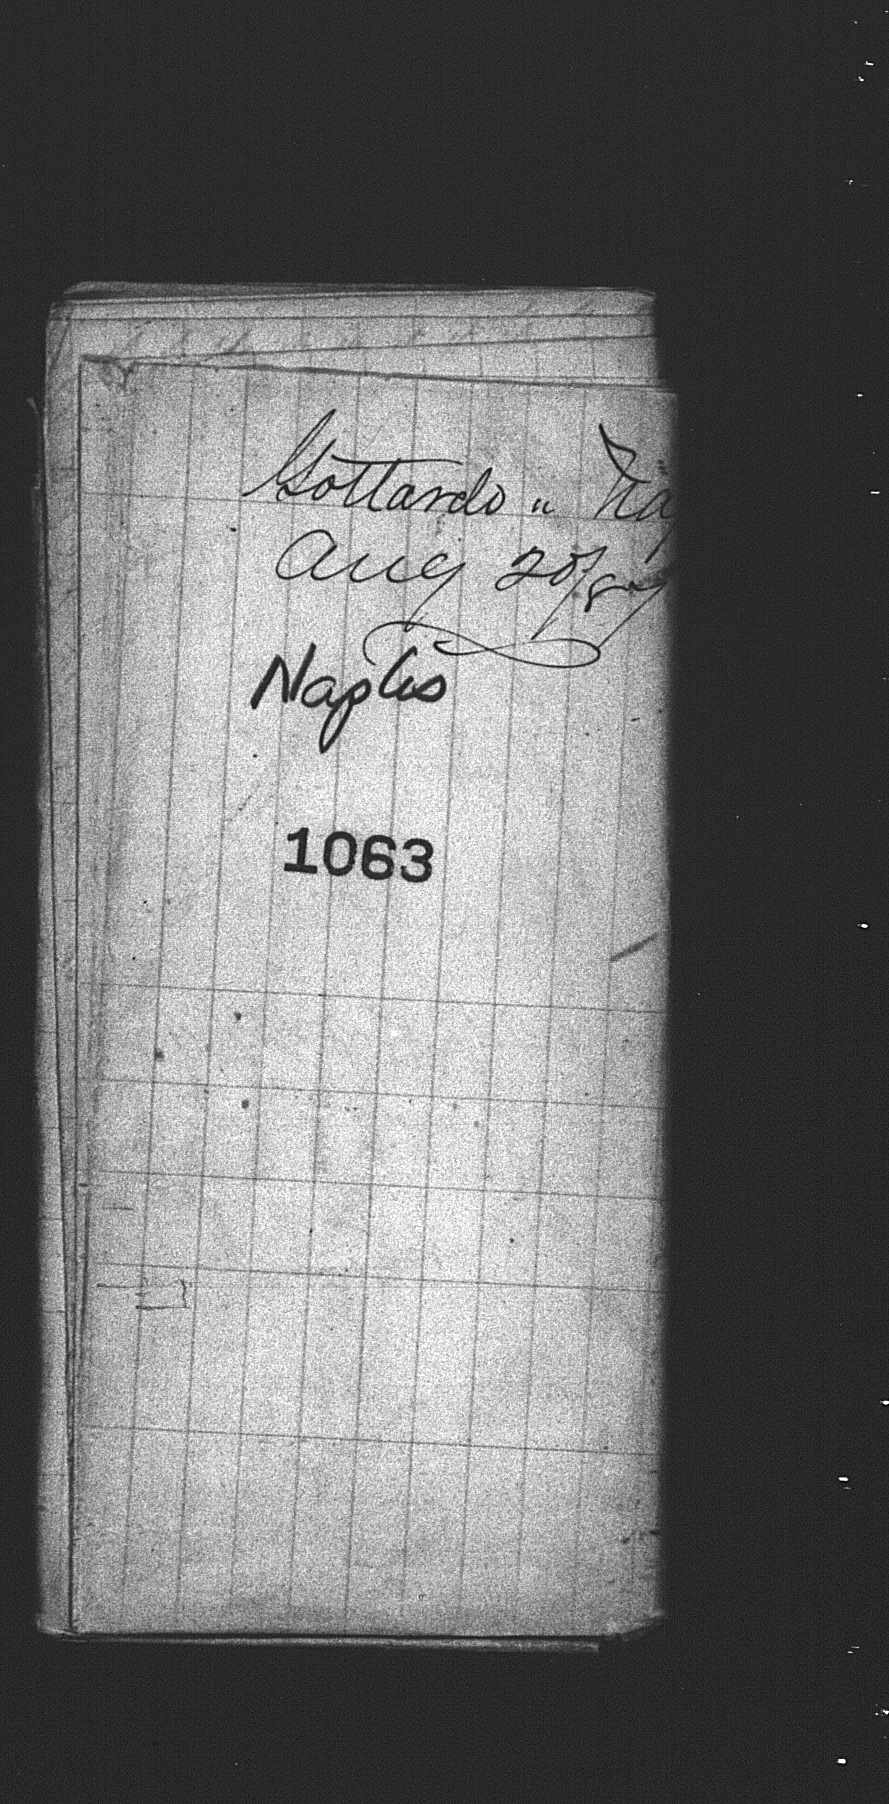 Gottardo " Na
Aug 20/87
Naples
1063